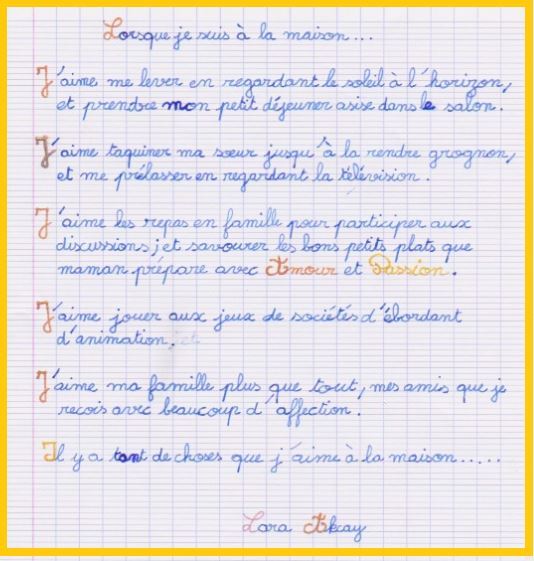 Lorsque je suis à la maison...
J'aime me lever en regardant le soleil à l'horizon,
et prendre mon petit déjeuner asise dans le salon.
J'aime taquiner ma sœur jusqu'à la rendre grognon,
et me prélasser en regardant la télévision.
J'aime les repas en famille pour participer aux
discussions, et savourer les bons petits plats que
maman prépare avec Amour et Passion.
J'aime jouer aux jeux de sociétés d'ébordant
d'animation.
J'aime ma famille plus que tout, mes amis que je
recois avec beaucoup d'affection.
Il y a tant de choses que j'aime à la maison.....
Lara Akcay